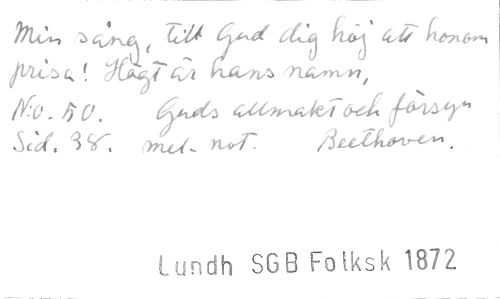 Min sång, till Gud dig höj att honom
prisa! Högt är hans namn,
N:o. 50. Guds allmakt och försyn
Sid. 38. mel. not. Beethoven.
Lundh SGB Folksk 1872